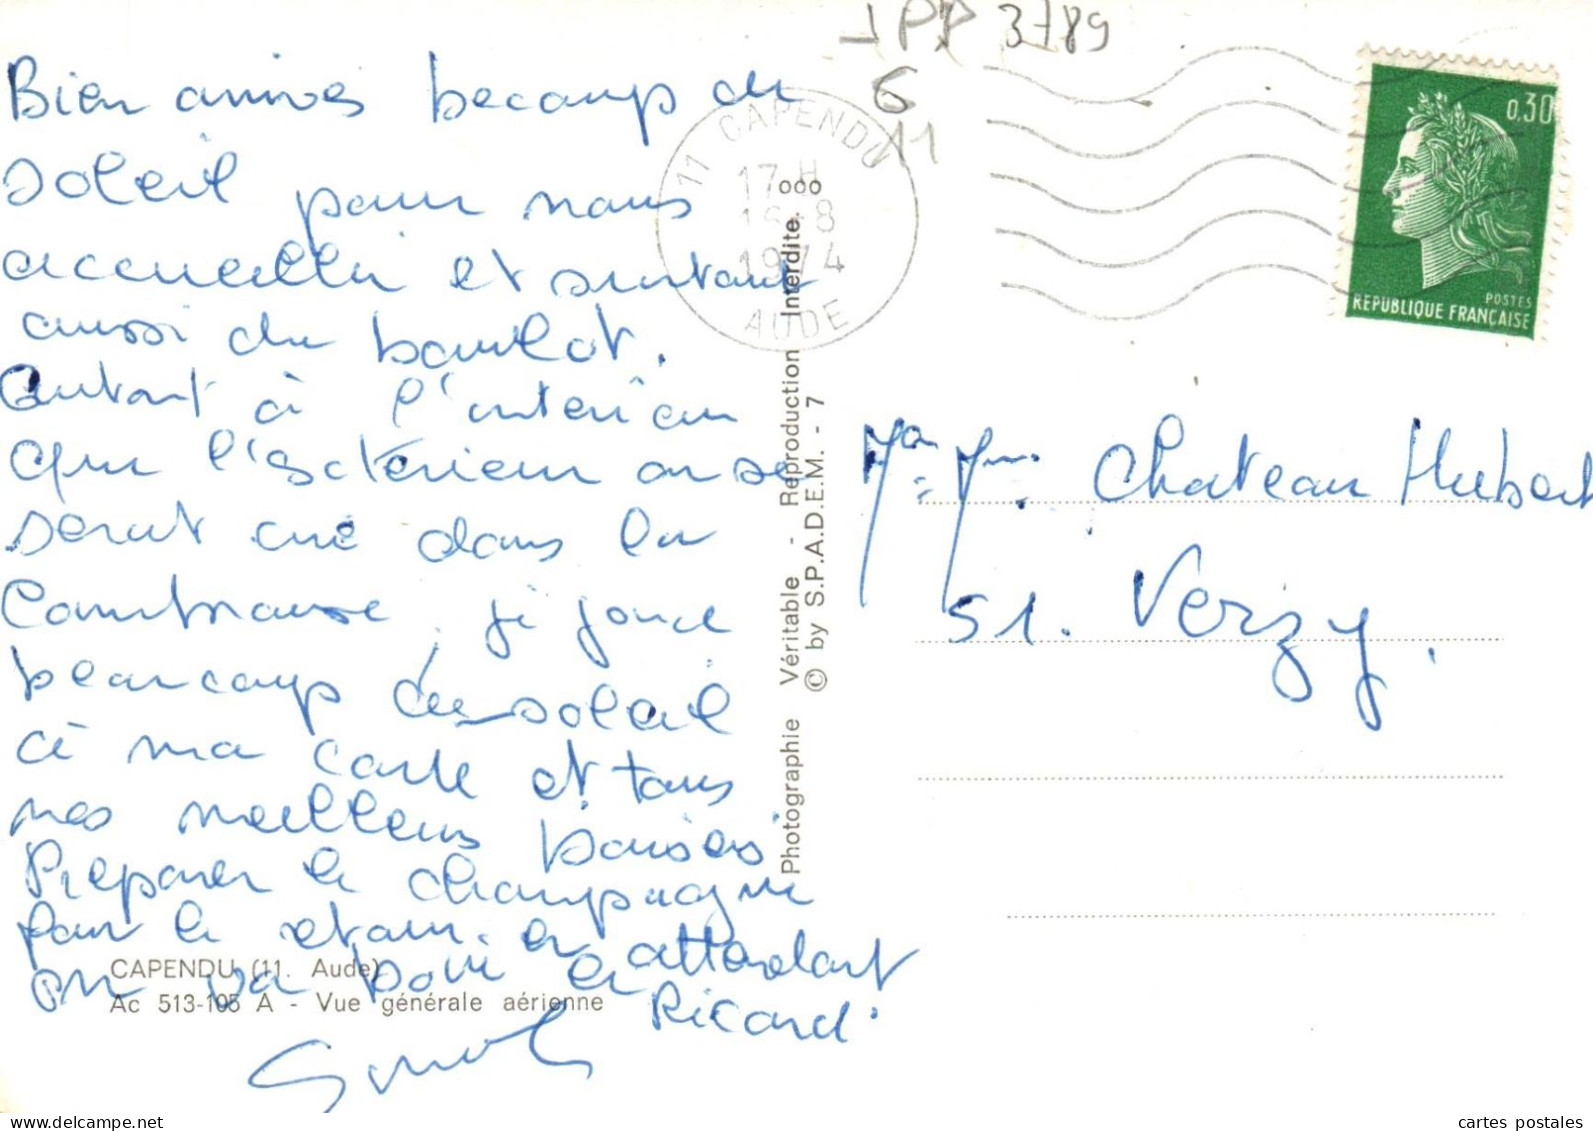 Bien arrivés becoup du
soleil pour nous
accueillir et surtout
aussi du boulot.
Autant à l'interieur
que l'exterieur on se
serait cru dans la
Cambrouse, je joint
beaucoup du soleil
à ma carte et tous
mes meilleurs baisers
Preparer le champagne
pour le retour. en attendant
on va boire le
Ricard.
CAPENDU (11. Aude)
Ac 513-105 A - Vue générale aérienne
Photographie Véritable - Reproduction Interdite. ooo
© by S.P.A.D.E.M. - 7
JPP 3789
6
11
11 CAPENDU
17 H
16-8
1974
AUDE
0,30
POSTES
REPUBLIQUE FRANÇAISE
Mr Mme Chateau Hubert
51. Verzy.
cartes postales
delcampe.net